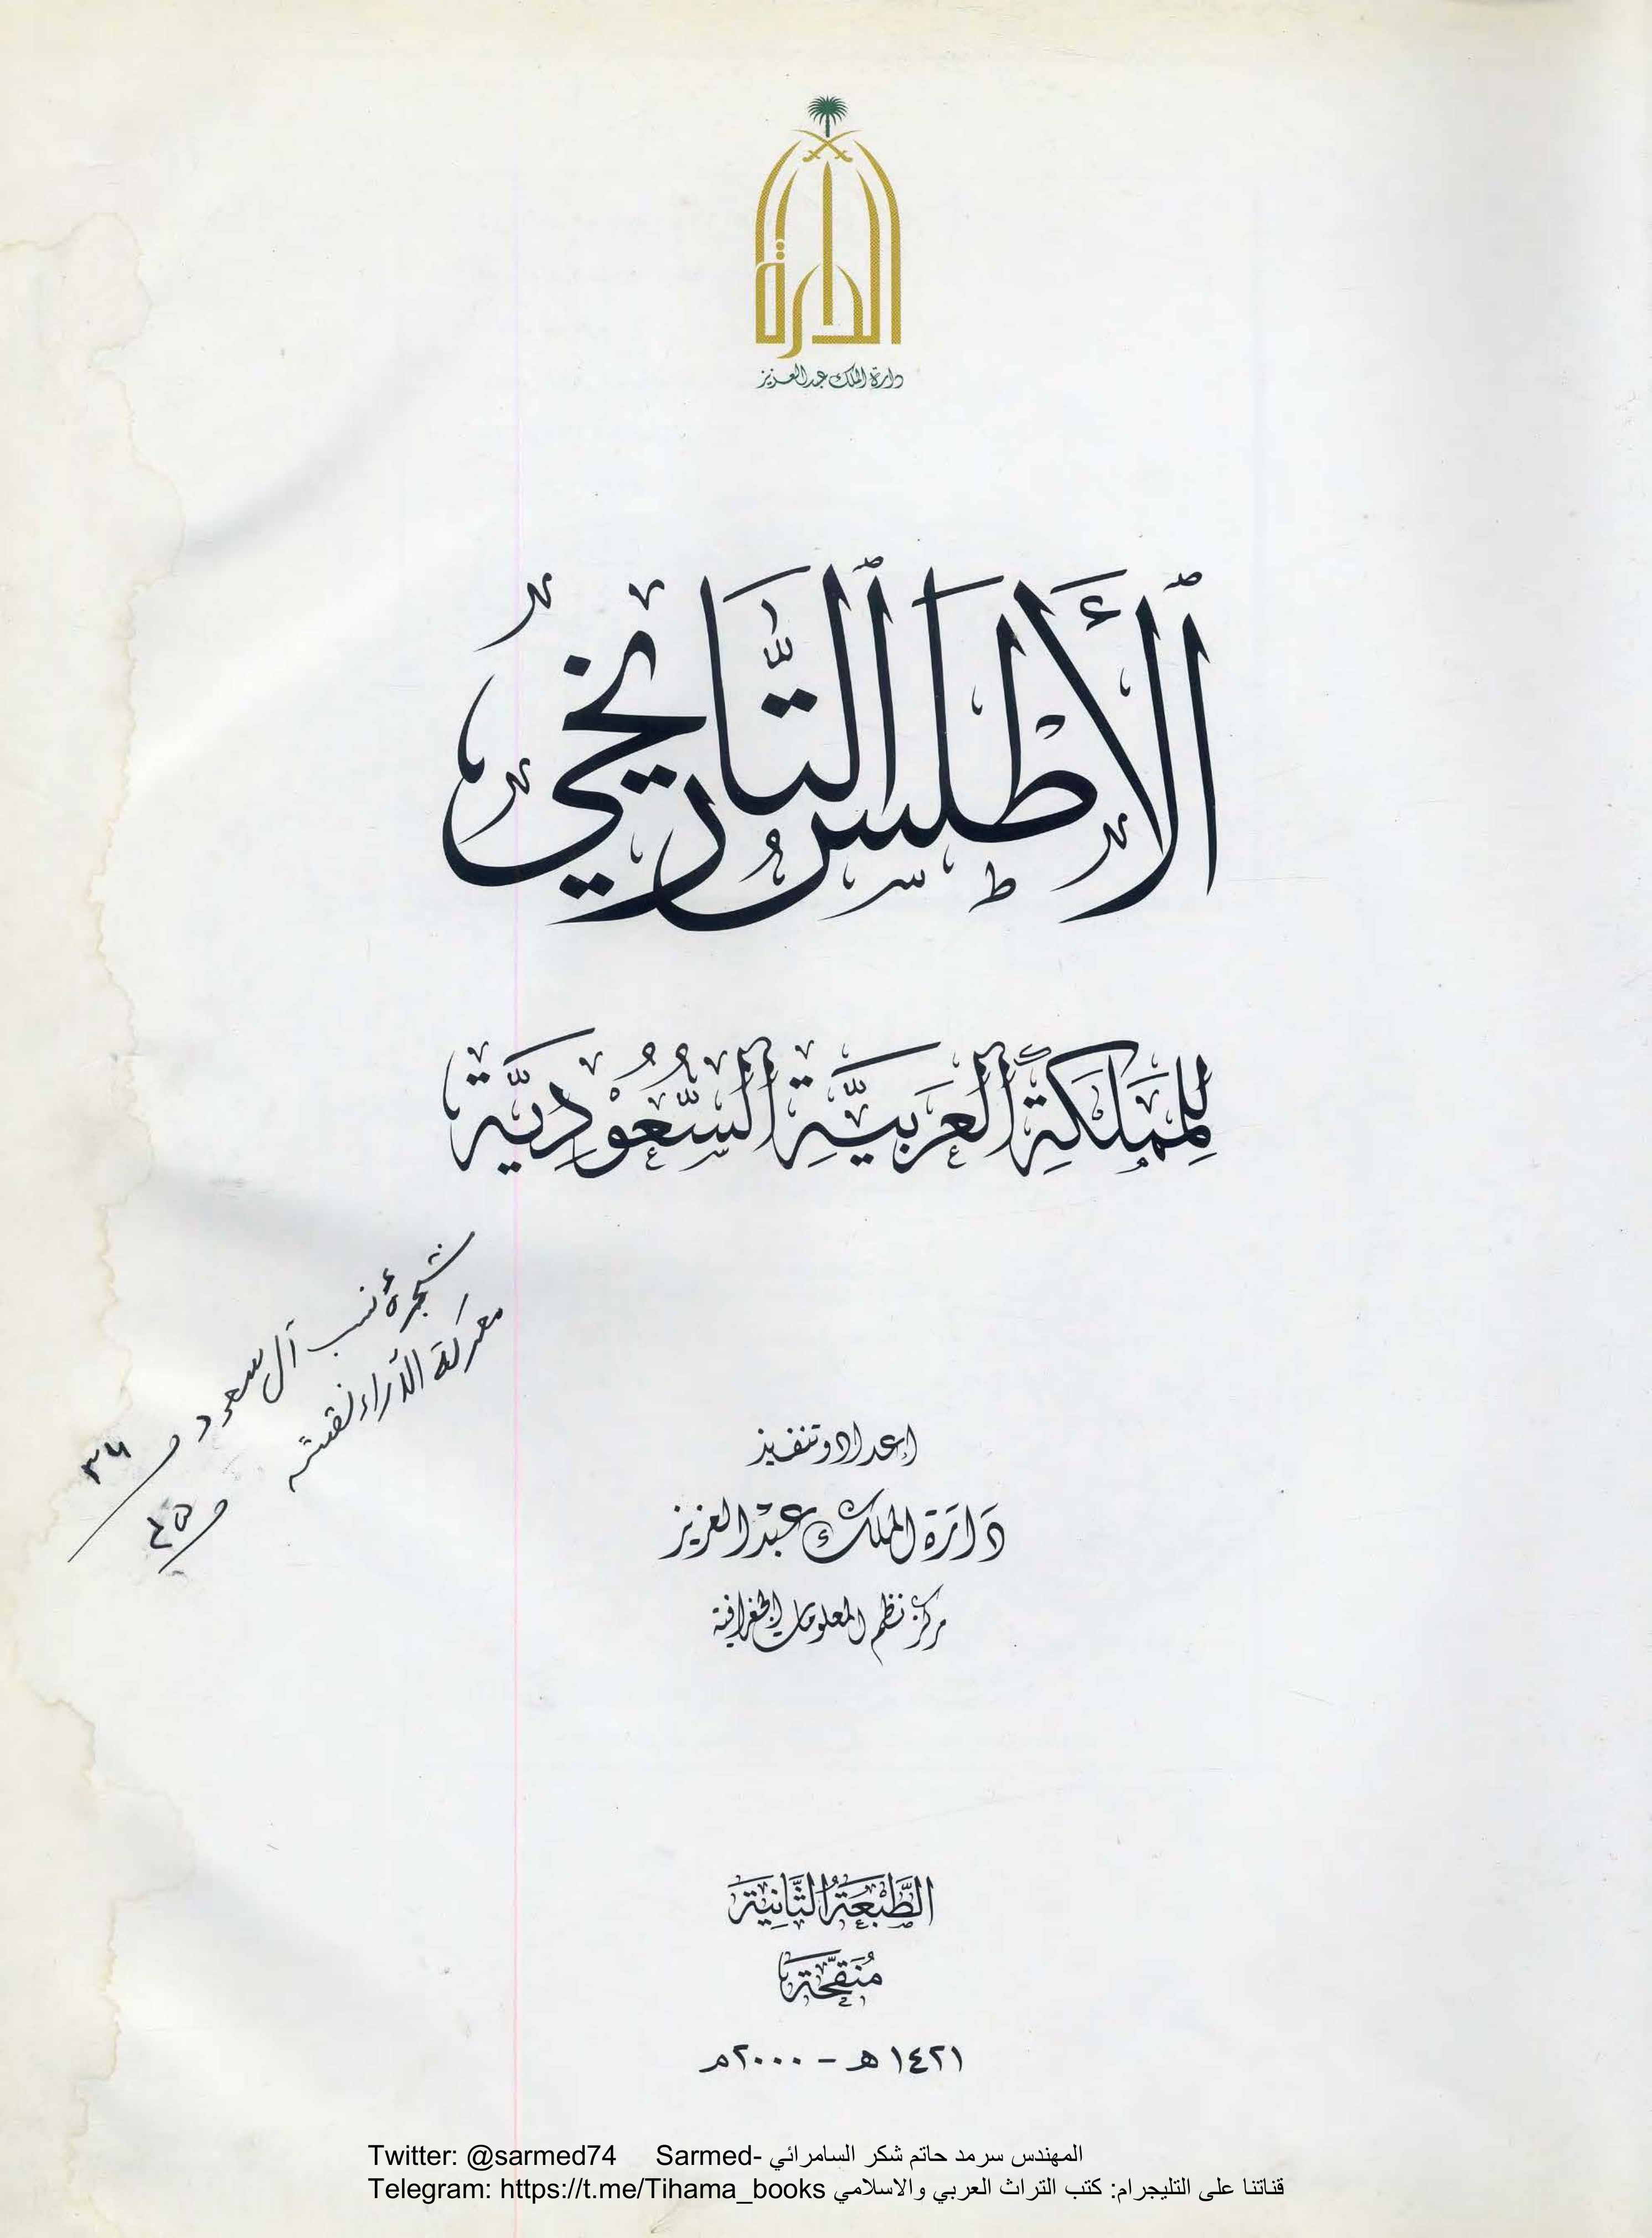 الدارة
دارة الملك عبدالعزيز
الأَطْلَسُ التَّارِيخِيُّ
لِلمَمْلَكَةِ العَرَبِيَّةِ السُّعُودِيَّةِ
شجرة نسب آل سعود ص ٣٦
معركة ص
إعداد وتنفيذ
دَارَة الملك عبْد العزيز
مركز نظم المعلومات الجغرافية
الطَّبْعَةُ الثَّانِيَة
مُنَقَّحَة
١٤٢١هـ - ٢٠٠٠م
Twitter: @sarmed74 Sarmed- المهندس سرمد حاتم شكر السامرائي
Telegram: https://t.me/Tihama_books قناتنا على التليجرام: كتب التراث العربي والاسلامي